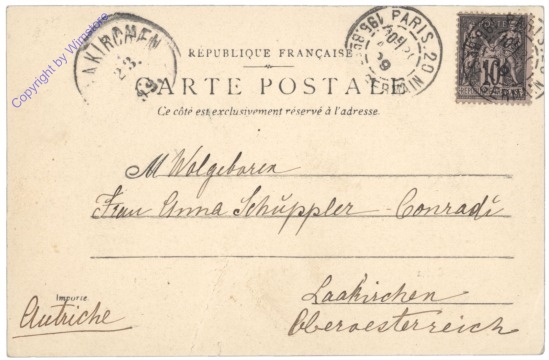 Copyright by Wimstore
LAAKIRCHEN
23.
99
PARIS 20
99
10
RÉPUBLIQUE FRANÇAISE
CARTE POSTALE
Ce côté est exclusivement réservé à l'adresse.
Wolgeboren
Frau Anna Schüppler-Conradi
Imprimé
Autriche
Laakirchen
Oberoesterreich